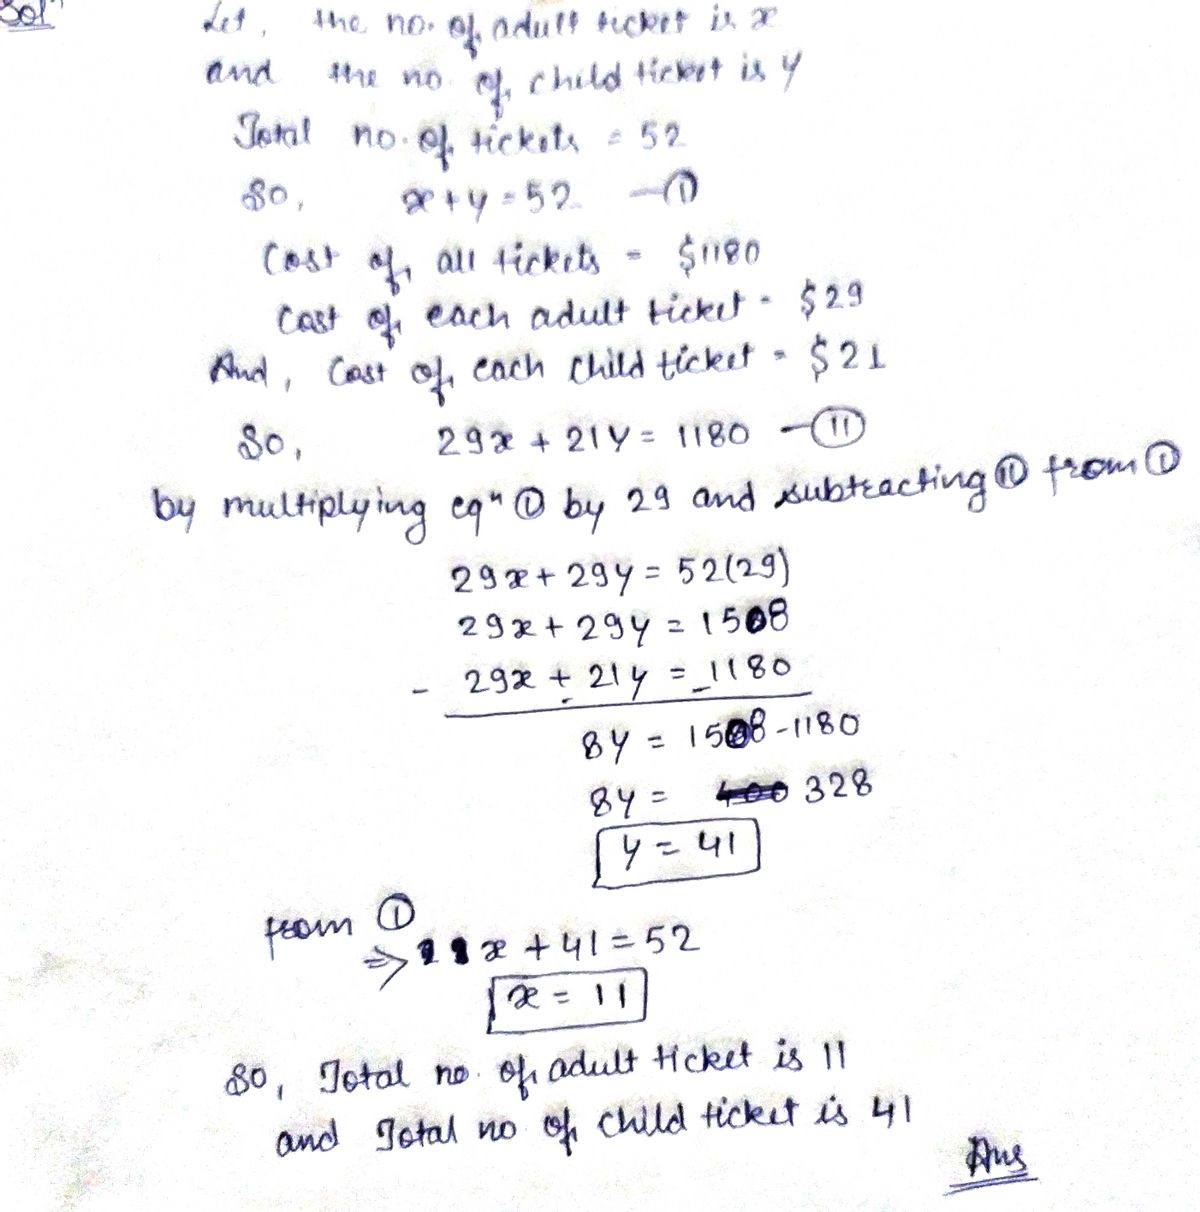 Sol^n
Let, the no. of adult ticket is x
and the no. of child ticket is y
Total no. of tickets = 52
So, x + y = 52 —①
Cost of all tickets = $1180
Cost of each adult ticket = $29
And, Cost of each child ticket = $21
So, 29x + 21y = 1180 —⑪
by multiplying eqⁿ ① by 29 and subtracting ⑪ from ①
29x + 29y = 52(29)
29x + 29y = 1508
- 29x + 21y = 1180
8y = 1508 - 1180
8y = 400 328
y = 41
from ①
⇒ x + 41 = 52
x = 11
So, Total no. of adult ticket is 11
and Total no of child ticket is 41
Ans